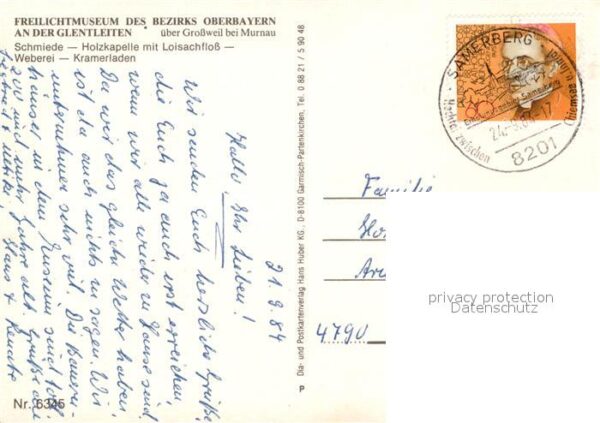 FREILICHTMUSEUM DES BEZIRKS OBERBAYERN
AN DER GLENTLEITEN über Großweil bei Murnau
Schmiede — Holzkapelle mit Loisachfloß —
Weberei — Kramerladen
21.9.84
Hallo, Ihr Lieben!
Wir senden Euch herzliche Grüße,
die Euch ja auch erst erreichen,
wenn wir alle wieder zu Hause sind.
Da wir das gleiche Wetter haben
ist da auch nichts zu sagen. Wir
unternehmen sehr viel. Die Bauern-
häuser in dem Museum sind
200 und mehr Jahre alt. Grüße an
Hans & Renate
Nr. 6345
Dia- und Postkartenverlag Hans Huber KG., D-8100 Garmisch-Partenkirchen, Tel. 0 88 21 / 5 90 48
P
SAMERBERG
zwischen
Chiemsee u. Inn
8201
Familie
4790
privacy protection
Datenschutz